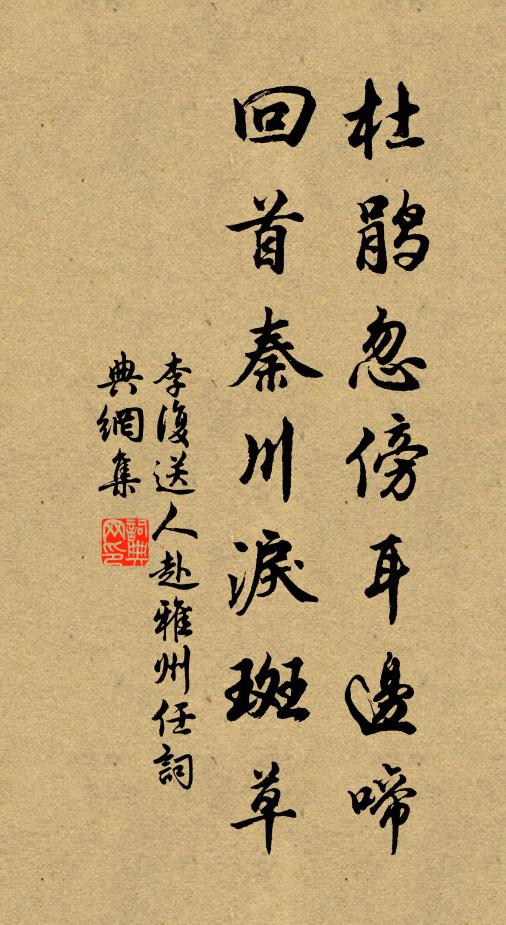 杜鹃忽傍耳邊啼
回首秦川淚斑草
李復送人赴雅州任詞
典網集
詞典網印